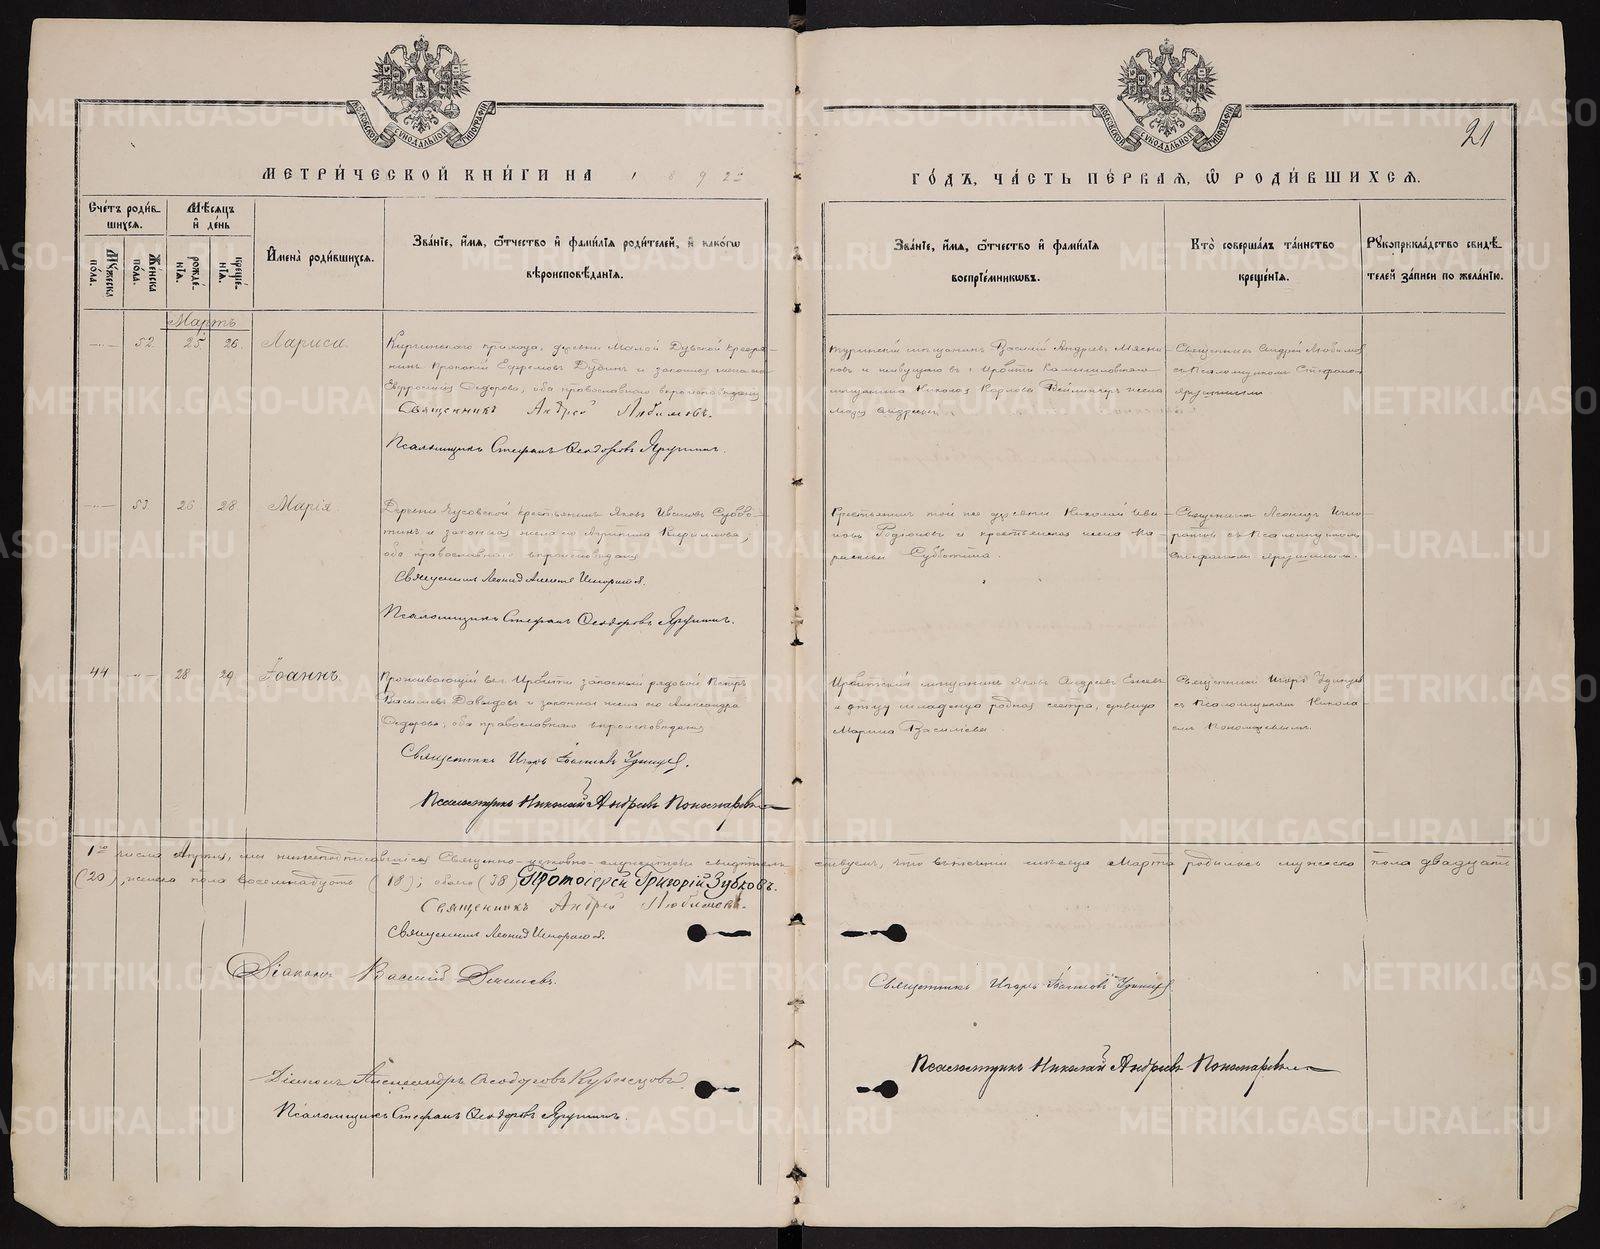 МОСКОВСКОЙ СУНОДАЛЬНОЙ ТИПОГРАФІИ
МОСКОВСКОЙ СУНОДАЛЬНОЙ ТИПОГРАФІИ
21
МЕТРИ́ЧЕСКОЙ КНИ́ГИ НА 1892
ГО́ДЪ, ЧА́СТЬ ПЕ́РВАЯ, Ѡ РОДИ́ВШИХСЯ.
Сче́тъ роди́в-
шихся.
Мѣ́сяцъ
и҆ де́нь
Му́жеска
по́ла.
Же́нска
по́ла.
рожде́-
нїя.
креще́-
нїя.
И҆мена̀ роди́вшихся.
Зва́нїе, и҆́мя, ѻ҆́тчество и҆ фами́лїя роди́телей, и҆ како́гѡ
вѣроисповѣ́данїя.
Зва́нїе, и҆́мя, ѻ҆́тчество и҆ фами́лїя
воспрїе́мникѡвъ.
Кто̀ соверша́лъ та́инство
креще́нїя.
Рꙋкоприкла́дство свидѣ́-
телей за́писи по жела́нїю.
Мартъ
52 25 26 Лариса
Киргинскаго прихода, деревни Малой Дубской крестья-
нинъ Прокопій Ефремовъ Дубинъ и законная жена его
Евфросинія Ѳедорова, оба православнаго вероисповеданія
Священникъ Андрей Любимовъ.
Псаломщикъ Стефанъ Ѳеодоровъ Ярушинъ.
Туринскій мещанинъ Василій Андреевъ
жена
Священникъ Андрей Любимов
съ Псаломщикомъ Стефаномъ
Ярушинымъ
53 26 28 Марія
Деревни крестьянинъ Яковъ Ивановъ Суббо-
тинъ и законная жена его Кириллова,
оба православнаго вероисповеданія
Священникъ Леонид
Псаломщикъ Стефанъ Ѳеодоровъ Ярушинъ.
Крестьянинъ той же деревни Николай Ива-
новъ и крестьянская жена
Субботина.
Священникъ Леонидъ
съ Псаломщикомъ
Стефаномъ Ярушинымъ.
44 28 29 Іоаннъ
Проживающій въ г. Ирбити запасной рядовой Петръ
Васильевъ Давыдовъ и законная жена его Александра
Ѳедорова, оба православнаго вероисповеданія
Священникъ Игорь
Псаломщикъ Николай Андреевъ Пономаревъ
Ирбитскій мещанинъ Яковъ Андреевъ
и отцу младенца родная сестра, девица
Марина Васильева.
Священникъ Игорь
съ Псаломщикомъ Никола-
емъ Пономаревымъ.
1го числа Апреля, мы нижеподписавшіеся Священно-церковно-служители свидетель-
ствуемъ, что въ теченіи месяца Марта родилось мужеска пола двадцать
(20), женска пола восемнадцать (18); обоего (38) Протоіерей Григорій Зубковъ.
Священникъ Андрей Любимовъ.
Священникъ Леонид
Діаконъ Василій
Священникъ Игорь
Діаконъ Александръ Ѳеодоровъ Кузнецовъ
Псаломщикъ Стефанъ Ѳеодоровъ Ярушинъ.
Псаломщикъ Николай Андреевъ Пономаревъ
METRIKI.GASO-URAL.RU